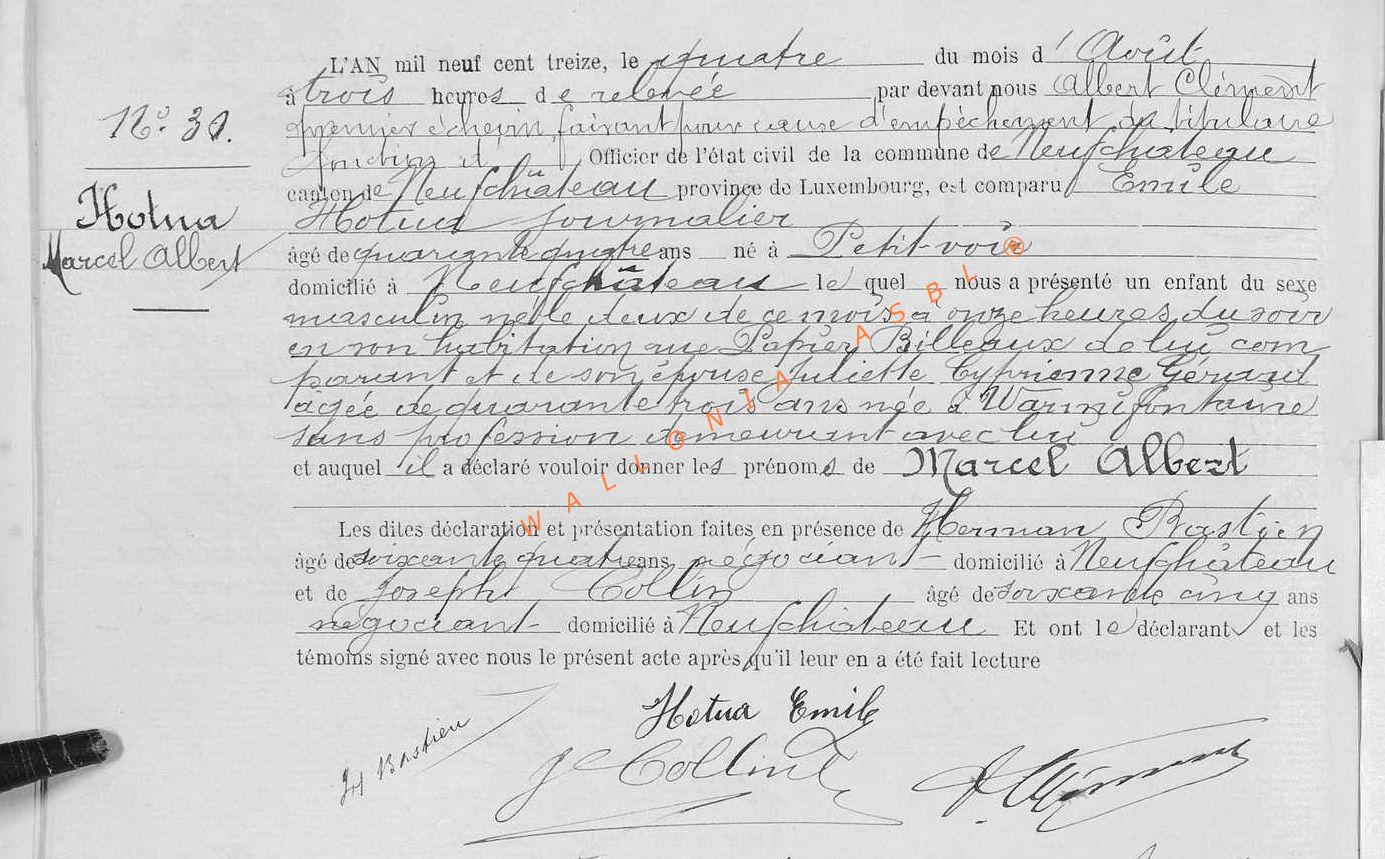 L'AN mil neuf cent treize, le quatre du mois d'Août
à trois heures de relevée par devant nous Albert Clément
premier échevin faisant pour cause d'empêchement du titulaire
fonction d' Officier de l'état civil de la commune de Neufchâteau
canton de Neufchâteau province de Luxembourg, est comparu Emile
Hotua journalier
âgé de quarante quatre ans né à Petitvoir
domicilié à Neufchâteau lequel nous a présenté un enfant du sexe
masculin né le deux de ce mois à onze heures du soir
en son habitation rue Papier Billeaux de lui com
parant et de son épouse Juliette Cyprienne Gérard
âgée de quarante trois ans née à Warmifontaine
sans profession demeurant avec lui
et auquel il a déclaré vouloir donner les prénoms de Marcel Albert
Les dites déclaration et présentation faites en présence de Herman Bastien
âgé de soixante quatre ans négociant domicilié à Neufchâteau
et de Joseph Collin âgé de soixante cinq ans
négociant domicilié à Neufchâteau Et ont le déclarant et les
témoins signé avec nous le présent acte après qu'il leur en a été fait lecture
Hotua Emile
Bastien
Js Collin
A. Clément
N° 31.
Hotua
Marcel Albert
WALLONIA ASBL ®